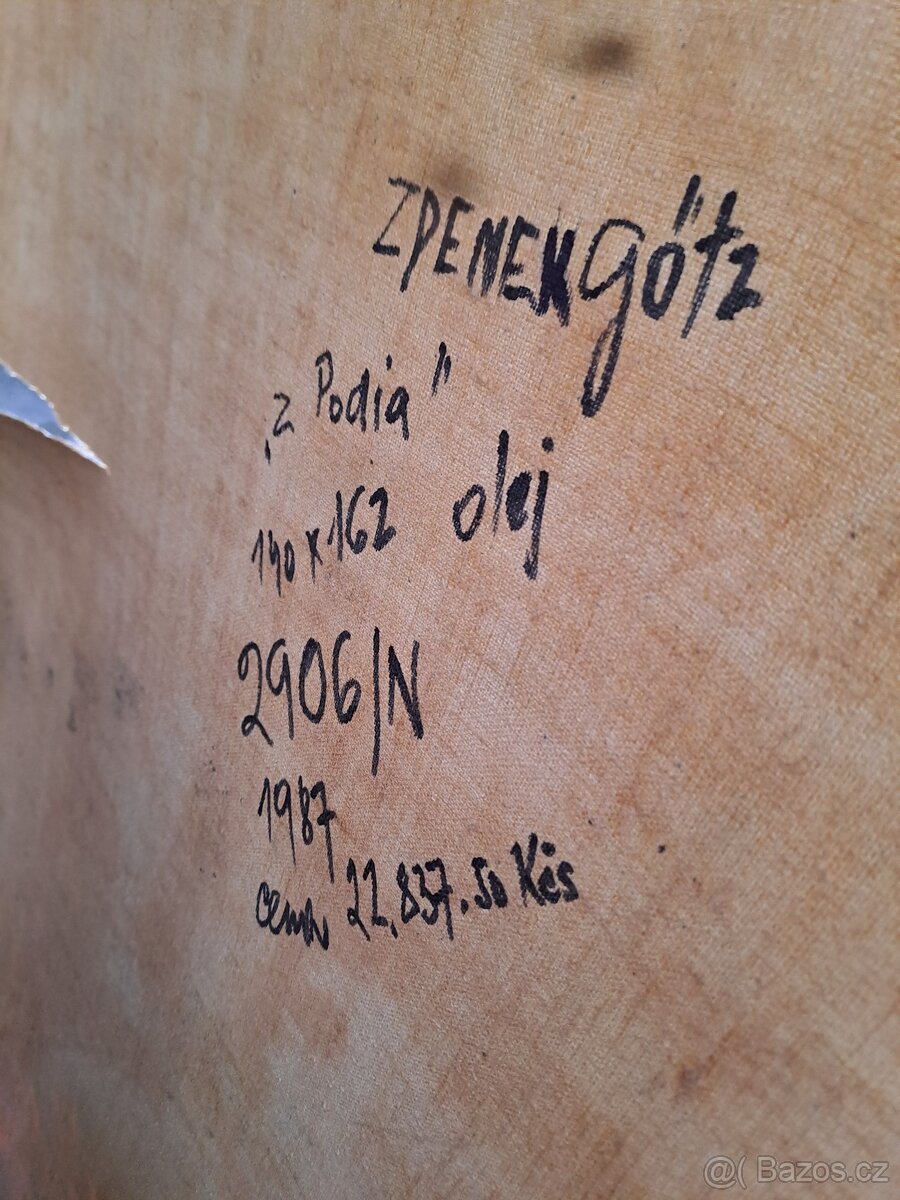 ZDENEK Götz
„z Podia"
140 x 162 olej
2906/N
1987
cena 22.837.50 Kčs
@( Bazos.cz